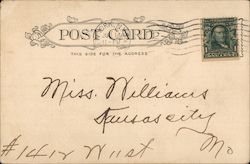 POST CARD
THIS SIDE FOR THE ADDRESS
Miss. Williams
Kansas city
#1412 W 11st Mo